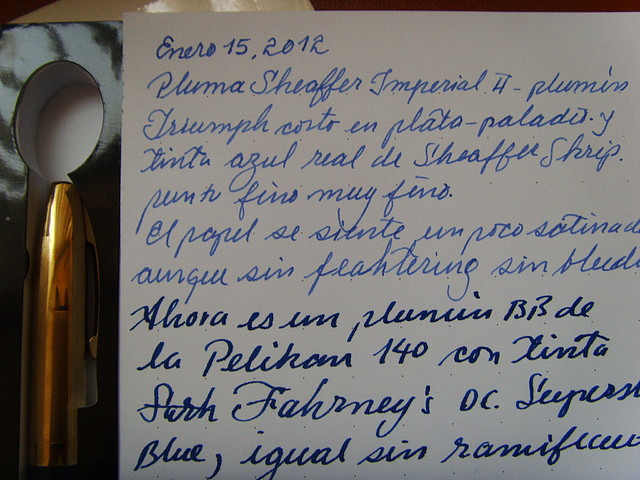 Enero 15, 2012
Pluma Sheaffer Imperial II - plumín
Triumph corto en plata-paladio y
tinta azul real de Sheaffer Skrip.
punto fino muy fino.
El papel se siente un poco satinad
aunque sin feahtering sin bleed
Ahora es un plumín BB de
la Pelikan 140 con tinta
Fahrney's DC. Supers
Blue, igual sin ramific